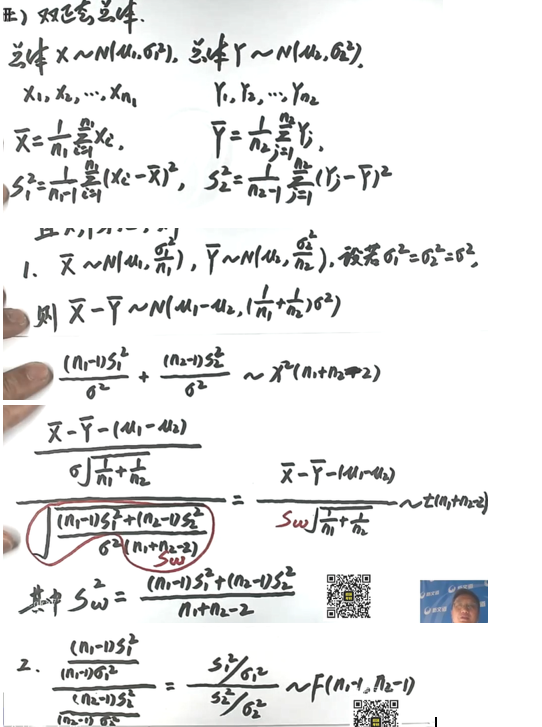 正) 双正态总体.
总体 X~N(μ₁,σ₁²), 总体 Y~N(μ₂,σ₂²),
X₁, X₂, …, Xn₁    Y₁, Y₂, …, Yn₂
X̄ = 1/n₁ Σ(i=1→n₁) Xi,    Ȳ = 1/n₂ Σ(j=1→n₂) Yj,
S₁² = 1/(n₁-1) Σ(i=1→n₁) (Xi - X̄)²,    S₂² = 1/(n₂-1) Σ(j=1→n₂) (Yj - Ȳ)²
1. X̄ ~N(μ₁, σ₁²/n₁), Ȳ~N(μ₂, σ₂²/n₂), 设若 σ₁²=σ₂²=σ²,
则 X̄ - Ȳ ~N(μ₁-μ₂, (1/n₁ + 1/n₂)σ²)
(n₁-1)S₁²/σ² + (n₂-1)S₂²/σ² ~ χ²(n₁+n₂-2)
[(X̄ - Ȳ - (μ₁-μ₂)) / (σ√(1/n₁ + 1/n₂))] / √[((n₁-1)S₁²+(n₂-1)S₂²) / (σ²(n₁+n₂-2))] = (X̄ - Ȳ - (μ₁-μ₂)) / (Sω√(1/n₁ + 1/n₂)) ~t(n₁+n₂-2)
Sω
其中 Sω² = ((n₁-1)S₁²+(n₂-1)S₂²) / (n₁+n₂-2)
2. [(n₁-1)S₁² / (n₁-1)σ₁²] / [(n₂-1)S₂² / (n₂-1)σ₂²] = (S₁²/σ₁²) / (S₂²/σ₂²) ~F(n₁-1, n₂-1)